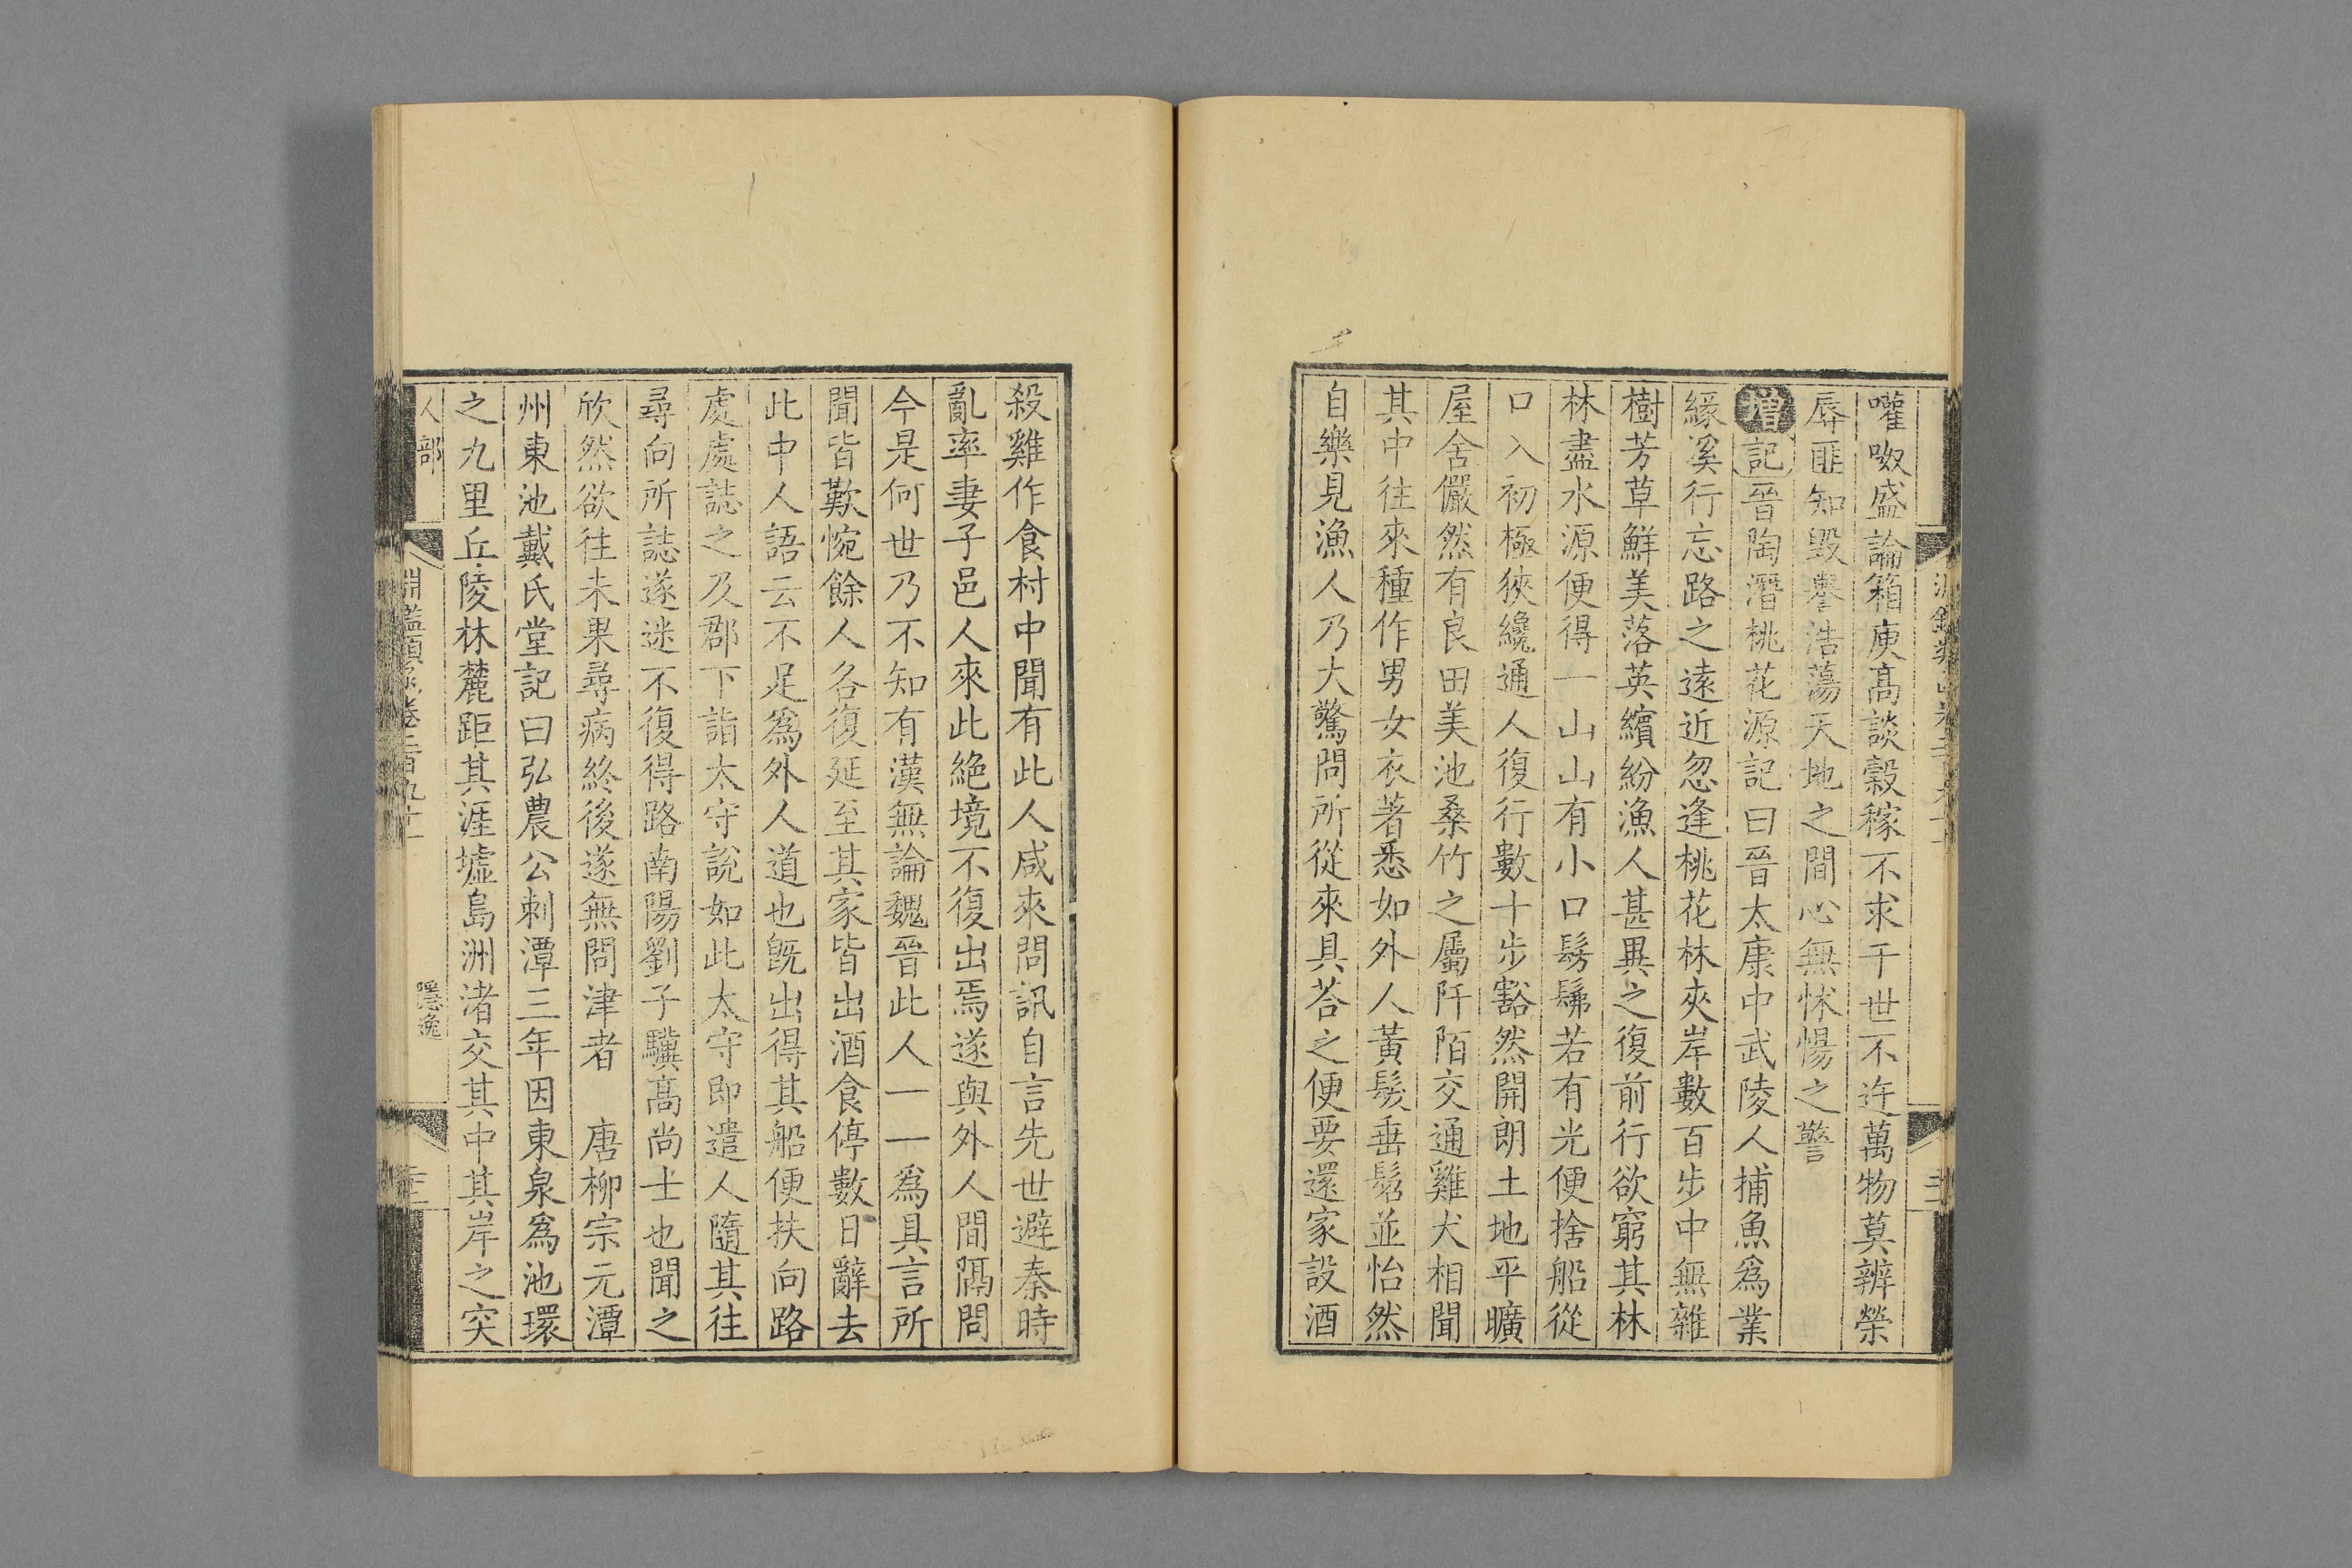 嚾呶盛論箱庾高談穀稼不求于世不迕萬物莫辨榮
辱匪知毀譽浩蕩天地之間心無怵惕之警
增記晉陶潛桃花源記曰晉太康中武陵人捕魚爲業
緣溪行忘路之遠近忽逢桃花林夾岸數百步中無雜
樹芳草鮮美落英繽紛漁人甚異之復前行欲窮其林
林盡水源便得一山山有小口髣髴若有光便捨船從
口入初極狹纔通人復行數十步豁然開朗土地平曠
屋舍儼然有良田美池桑竹之屬阡陌交通雞犬相聞
其中往來種作男女衣著悉如外人黃髮垂髫並怡然
自樂見漁人乃大驚問所從來具荅之便要還家設酒
殺雞作食村中聞有此人咸來問訊自言先世避秦時
亂率妻子邑人來此絕境不復出焉遂與外人間隔問
今是何世乃不知有漢無論魏晉此人一一爲具言所
聞皆歎惋餘人各復延至其家皆出酒食停數日辭去
此中人語云不足爲外人道也旣出得其船便扶向路
處處誌之及郡下詣太守說如此太守即遣人隨其往
尋向所誌遂迷不復得路南陽劉子驥高尚士也聞之
欣然欲往未果尋病終後遂無問津者　唐柳宗元潭
州東池戴氏堂記曰弘農公刺潭三年因東泉爲池環
之九里丘陵林麓距其涯墟島洲渚交其中其岸之突
人部
淵鑑類函卷二百九十一
隱逸